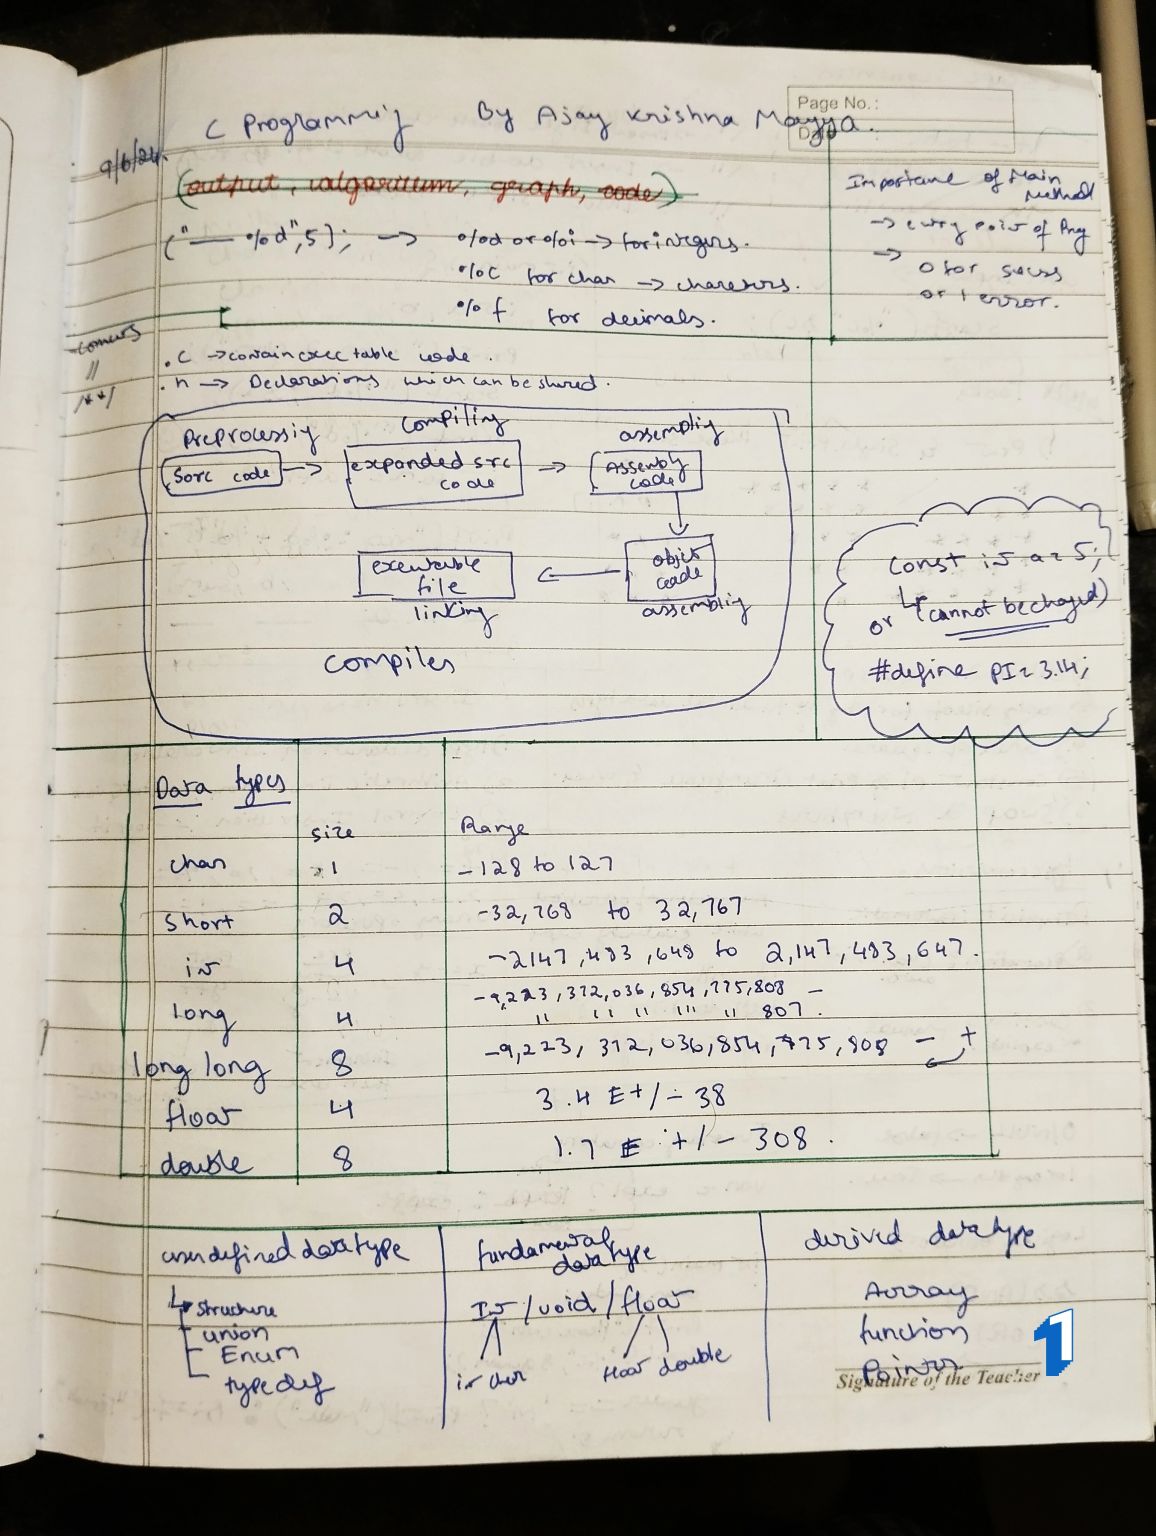 Page No.:
C Programmig By Ajay Krishna Mayya.
9/6/24.
(output, algorithm, graph, code)
Importance of Main Method
→ entry point of Prog
→ 0 for
or 1 error.
("— %d",5); → %d or %i → for integers.
%c for char →
%f for decimals.
//
/**/
.c → contain code.
.h → Declarations which can be shared.
Preprocessig compiling assemplig
Sorc code → expanded src code → Assembly code
↓
executable file ← object code
linking assemblig
compiles
const int a = 5;
or (cannot be changed)
#define PI = 3.14;
Data types
size Range
char 1 -128 to 127
short 2 -32,768 to 32,767
int 4 -2147,483,648 to 2,147,483,647.
long 4 -9,223,372,036,854,775,808 –
" " " " " 807.
long long 8 -9,223,372,036,854,775,808 – +
float 4 3.4 E+/- 38
double 8 1.7 E +/- 308.
user defined datatype
↳ structure
union
Enum
typedef
fundamental datatype
Int / void / float
int char float double
derived datatype
Array
function
Pointer
Signature of the Teacher
1